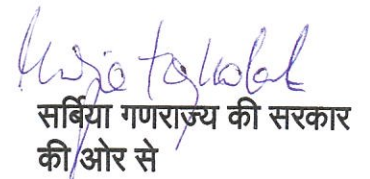 सर्बिया गणराज्य की सरकार
की ओर से